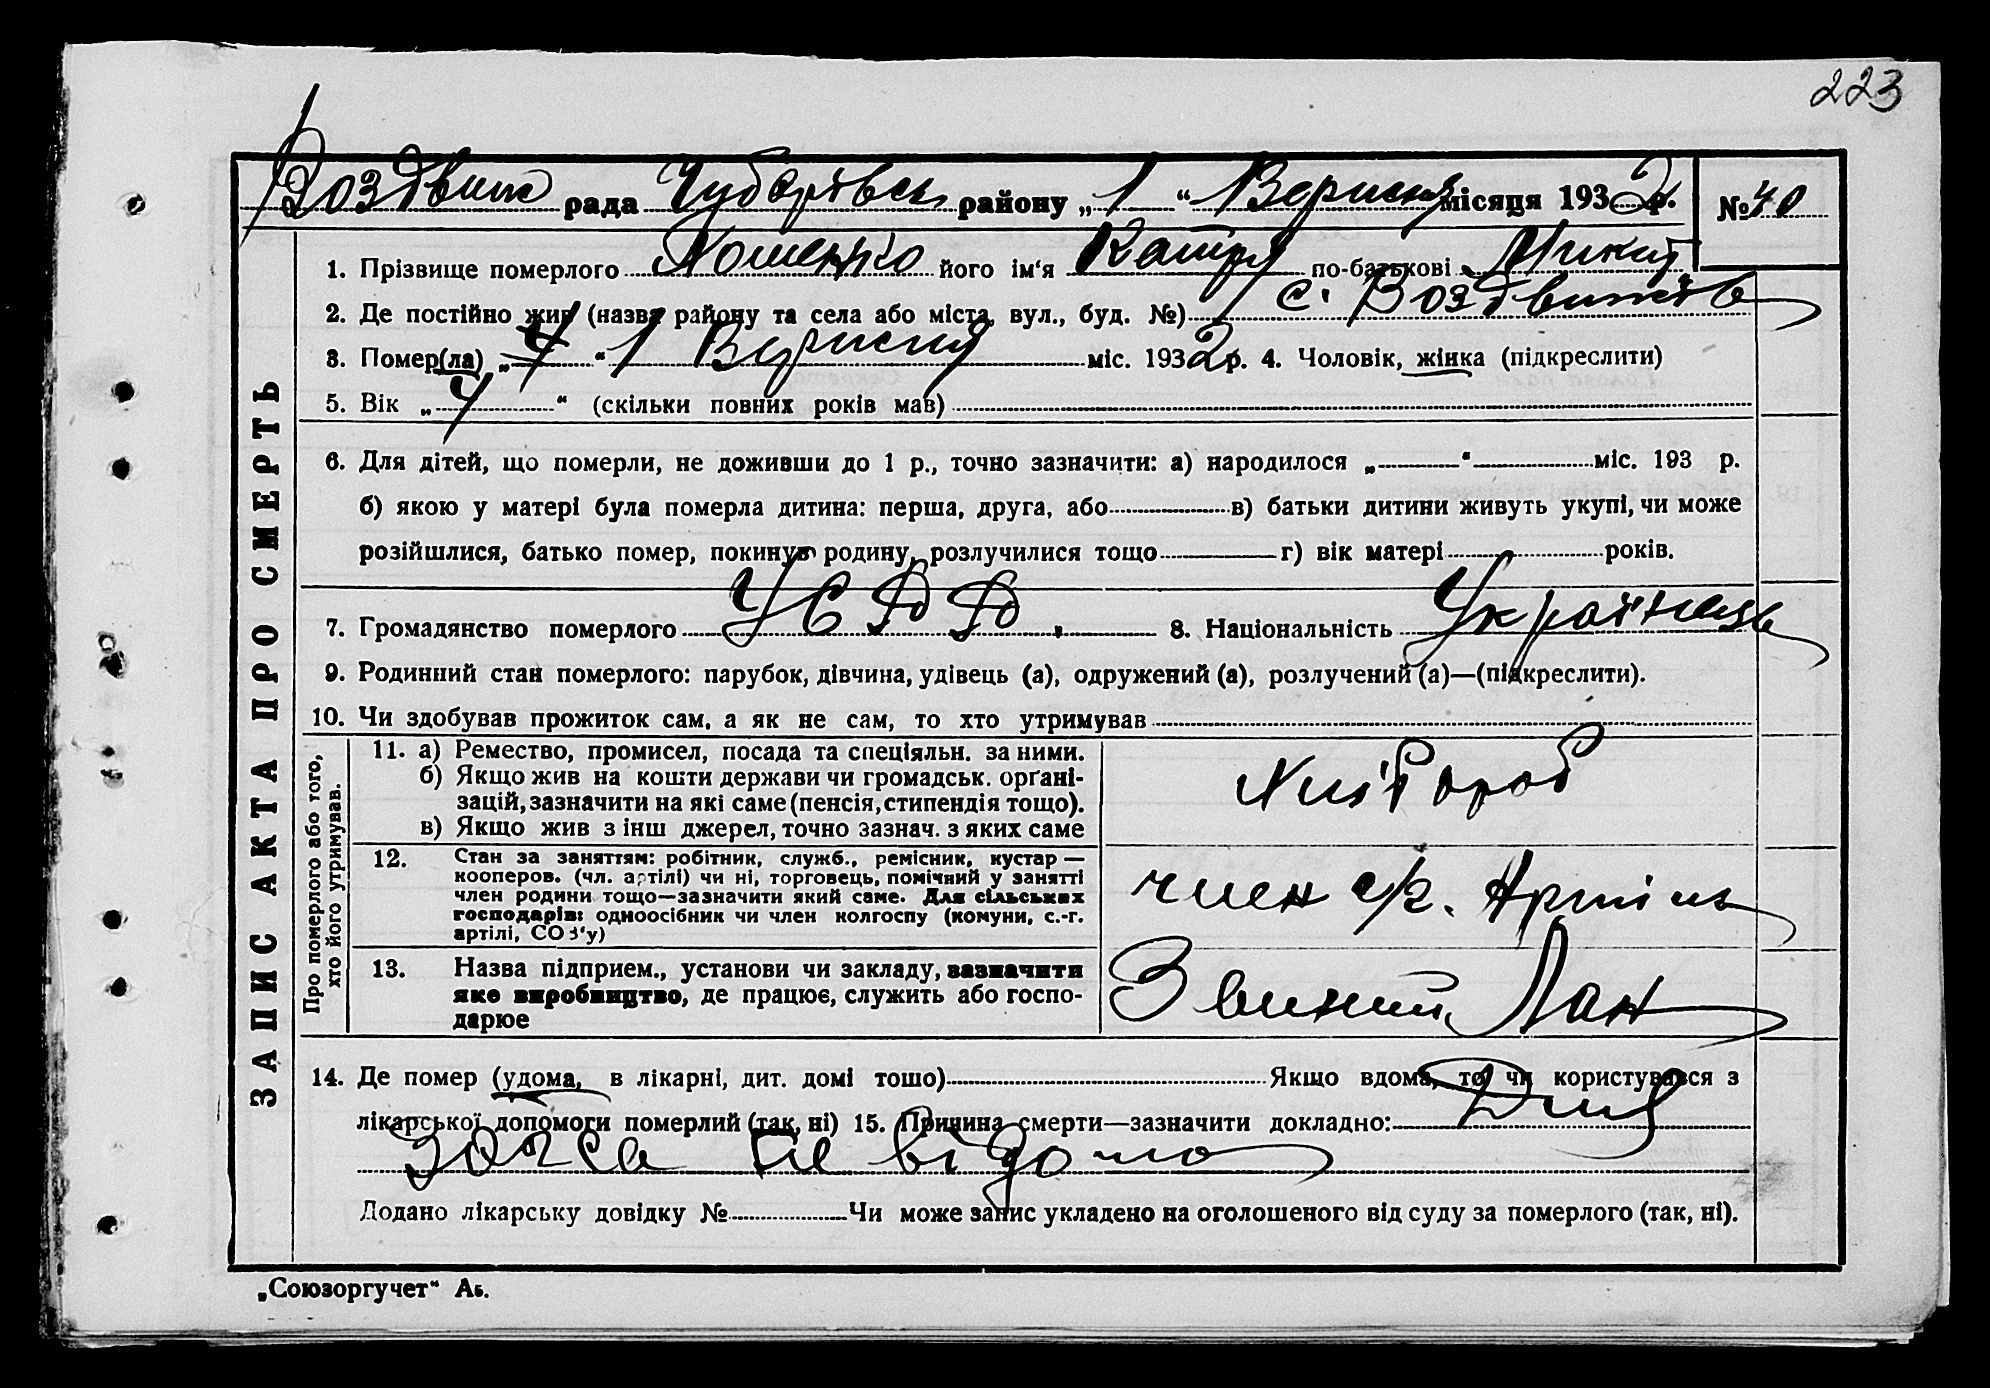 223
Воздвиж рада Чубарівськ району „1“ Вересня місяця 1932 р. № 40
1. Прізвище померлого Кошенко його ім'я Катря по-батькові Микит
2. Де постійно жив (назва району та села або міста, вул., буд. №) с. Воздвижівка
3. Помер(ла) „4“ 1 Вересня міс. 1932 р. 4. Чоловік, жінка (підкреслити)
5. Вік „4“ (скільки повних років мав)
6. Для дітей, що померли, не доживши до 1 р., точно зазначити: а) народилося „ “ міс. 193 р.
б) якою у матері була померла дитина: перша, друга, або в) батьки дитини живуть укупі, чи може
розійшлися, батько помер, покинув родину, розлучилися тощо г) вік матері років.
7. Громадянство померлого УСРР. 8. Національність Українець
9. Родинний стан померлого: парубок, дівчина, удівець (а), одружений (а), розлучений (а)—(підкреслити).
10. Чи здобував прожиток сам, а як не сам, то хто утримував
ЗАПИС АКТА ПРО СМЕРТЬ
Про померлого або того,
хто його утримував.
11. а) Ремество, промисел, посада та спеціяльн. за ними.
б) Якщо жив на кошти держави чи громадськ. орґані-
зацій, зазначити на які саме (пенсія, стипендія тощо).
в) Якщо жив з інш джерел, точно зазнач. з яких саме
Хлібороб
12. Стан за заняттям: робітник, служб., ремісник, кустар —
кооперов. (чл. артілі) чи ні, торговець, помічний у занятті
член родини тощо—зазначити який саме. Для сільських
господарів: одноосібник чи член колгоспу (комуни, с.-г.
артілі, СОЗ'у)
член с/г. Артіль
13. Назва підприєм., установи чи закладу, зазначити
яке виробництво, де працює, служить або госпо-
дарює
Лан
14. Де помер (удома, в лікарні, дит. домі тощо) Якщо вдома, то чи користувався з
лікарської допомоги померлий (так, ні) 15. Причина смерти—зазначити докладно:
не відомо
Додано лікарську довідку № Чи може запис укладено на оголошеного від суду за померлого (так, ні).
„Союзоргучет“ Аб.